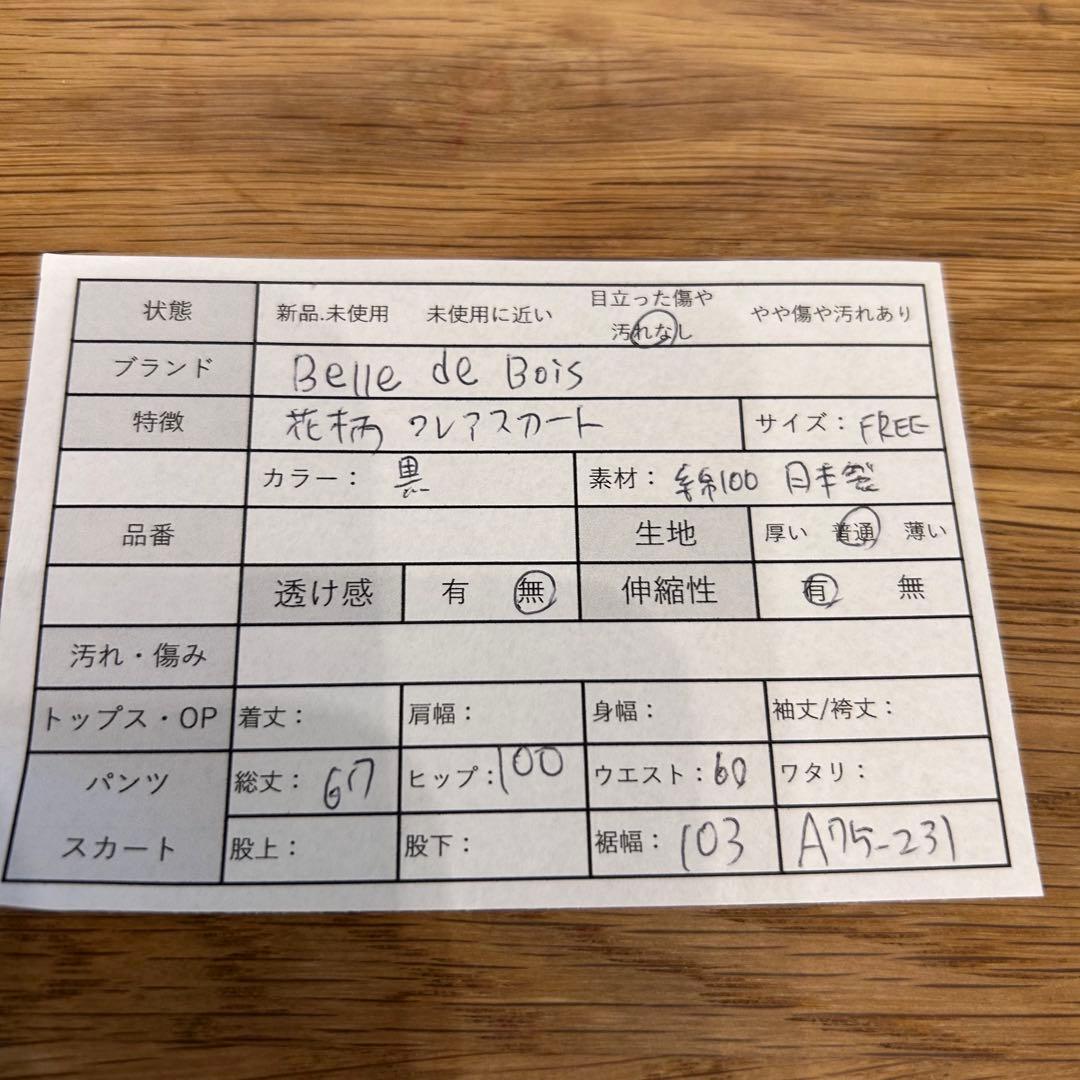 状態 新品.未使用 未使用に近い 目立った傷や汚れなし やや傷や汚れあり
ブランド Belle de Bois
特徴 花柄 フレアスカート サイズ: FREE
カラー: 黒 素材: 綿100 日本製
品番 生地 厚い 普通 薄い
透け感 有 無 伸縮性 有 無
汚れ・傷み
トップス・OP 着丈: 肩幅: 身幅: 袖丈/袴丈:
パンツ 総丈: 67 ヒップ: 100 ウエスト: 60 ワタリ:
スカート 股上: 股下: 裾幅: 103 A75-231